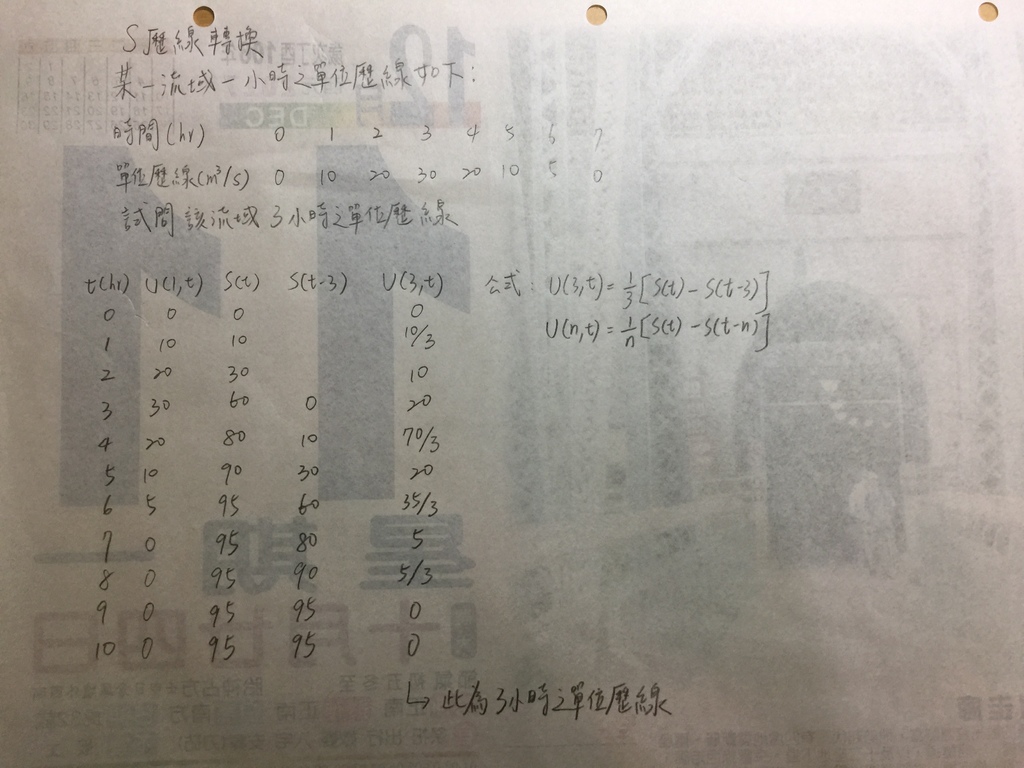 S歷線轉換
某一流域一小時之單位歷線如下：
時間(hr) 0 1 2 3 4 5 6 7
單位歷線(m³/s) 0 10 20 30 20 10 5 0
試問該流域3小時之單位歷線
t(hr) U(1,t) S(t) S(t-3) U(3,t) 公式： U(3,t)=1/3[S(t)-S(t-3)]
0 0 0 0 U(n,t)=1/n[S(t)-S(t-n)]
1 10 10 10/3
2 20 30 10
3 30 60 0 20
4 20 80 10 70/3
5 10 90 30 20
6 5 95 60 35/3
7 0 95 80 5
8 0 95 90 5/3
9 0 95 95 0
10 0 95 95 0
↳ 此為3小時之單位歷線
12月
DEC
11
星期一
十月廿四日